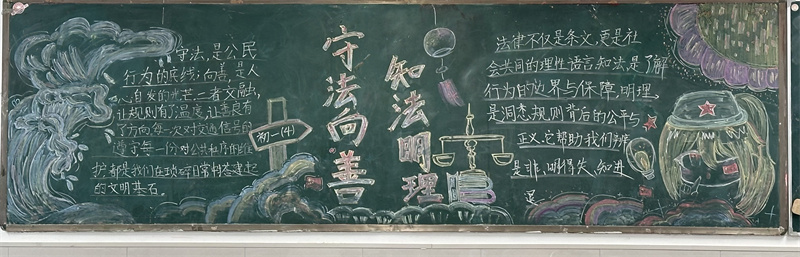 守法,是公民
行为的底线;向善,是人
心自发的光芒。二者交融,
让规则有了温度,让善良有
了方向。每一次对交通信号的
遵守,每一份对公共秩序的维
护,都是我们在琐碎日常中搭建起
的文明基石。
初一(4)
守法向善
知法明理
法律不仅是条文,更是社
会共同的理性语言,知法,是了解
行为的边界与保障,明理,
是洞悉规则背后的公平与
正义,它帮助我们辨
是非,明得失,知进
退。